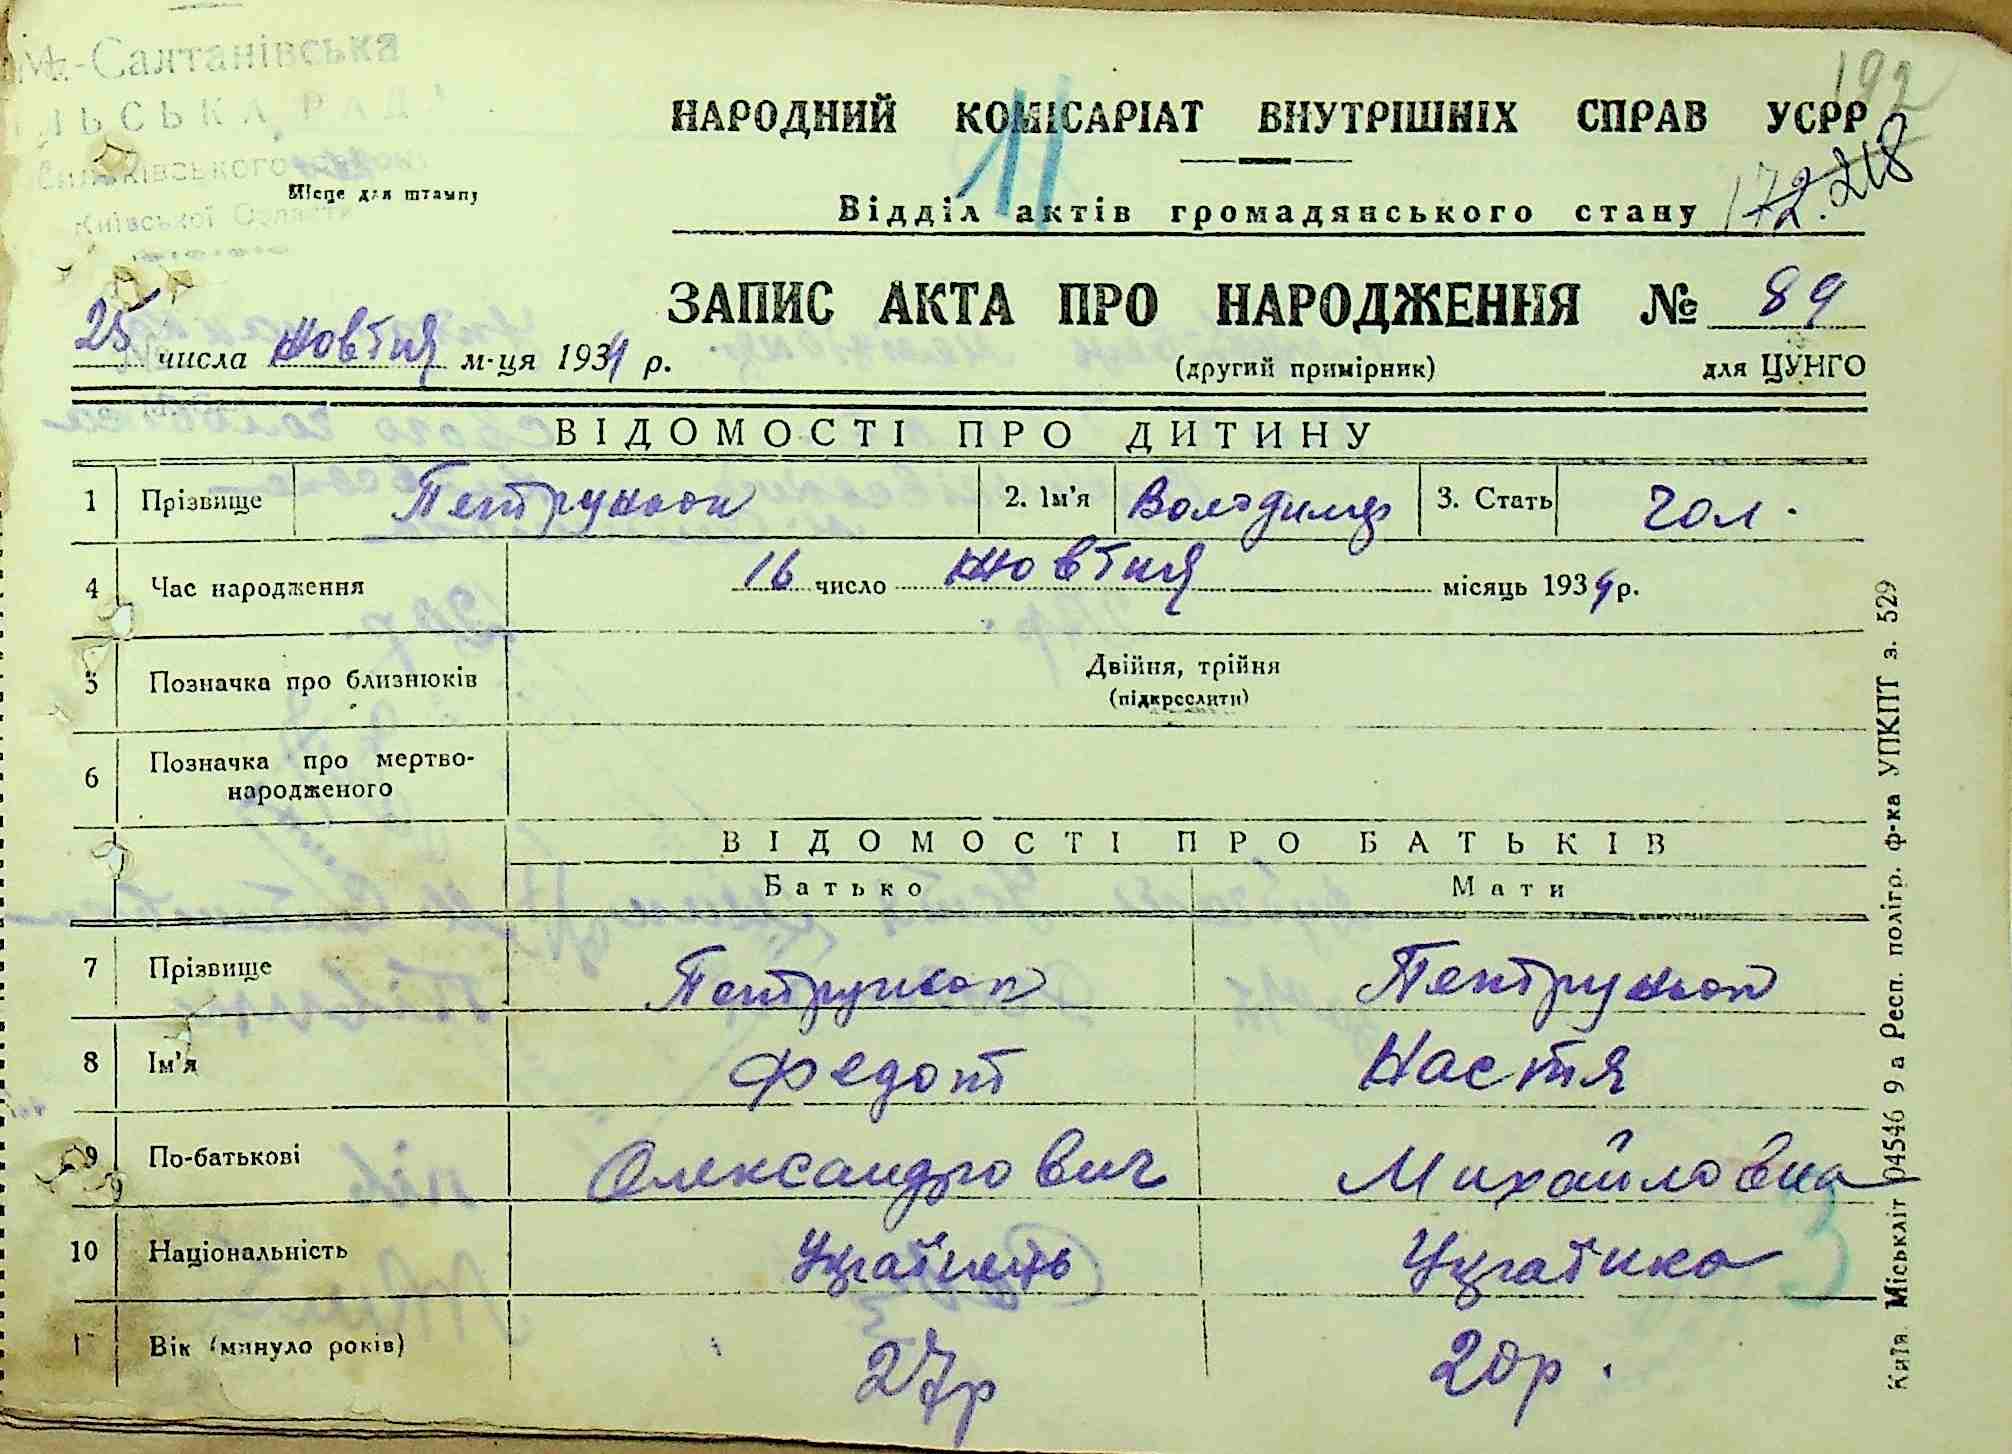 М.-Салтанівська
СІЛЬСЬКА РАДА
Київської Області
Місце для штампу
192
НАРОДНИЙ КОМІСАРІАТ ВНУТРІШНІХ СПРАВ УСРР
11
Відділ актів громадянського стану
172. 218
ЗАПИС АКТА ПРО НАРОДЖЕННЯ № 89
25 числа жовтня м-ця 1934 р.
(другий примірник)
для ЦУНГО
ВІДОМОСТІ ПРО ДИТИНУ
1 Прізвище 2. Ім'я Володимир 3. Стать Чол.
4 Час народження 16 число жовтня місяць 1934 р.
5 Позначка про близнюків Двійня, трійня
(підкреслити)
6 Позначка про мертво-
народженого
ВІДОМОСТІ ПРО БАТЬКІВ
Батько Мати
7 Прізвище
8 Ім'я Федот Настя
9 По-батькові Олександрович Михайловна
10 Національність Українець Українка
11 Вік (минуло років) 27р 20р.
3
Київ. Міськліт 04546 9 а Респ. полігр. ф-ка УПКПТ з. 529